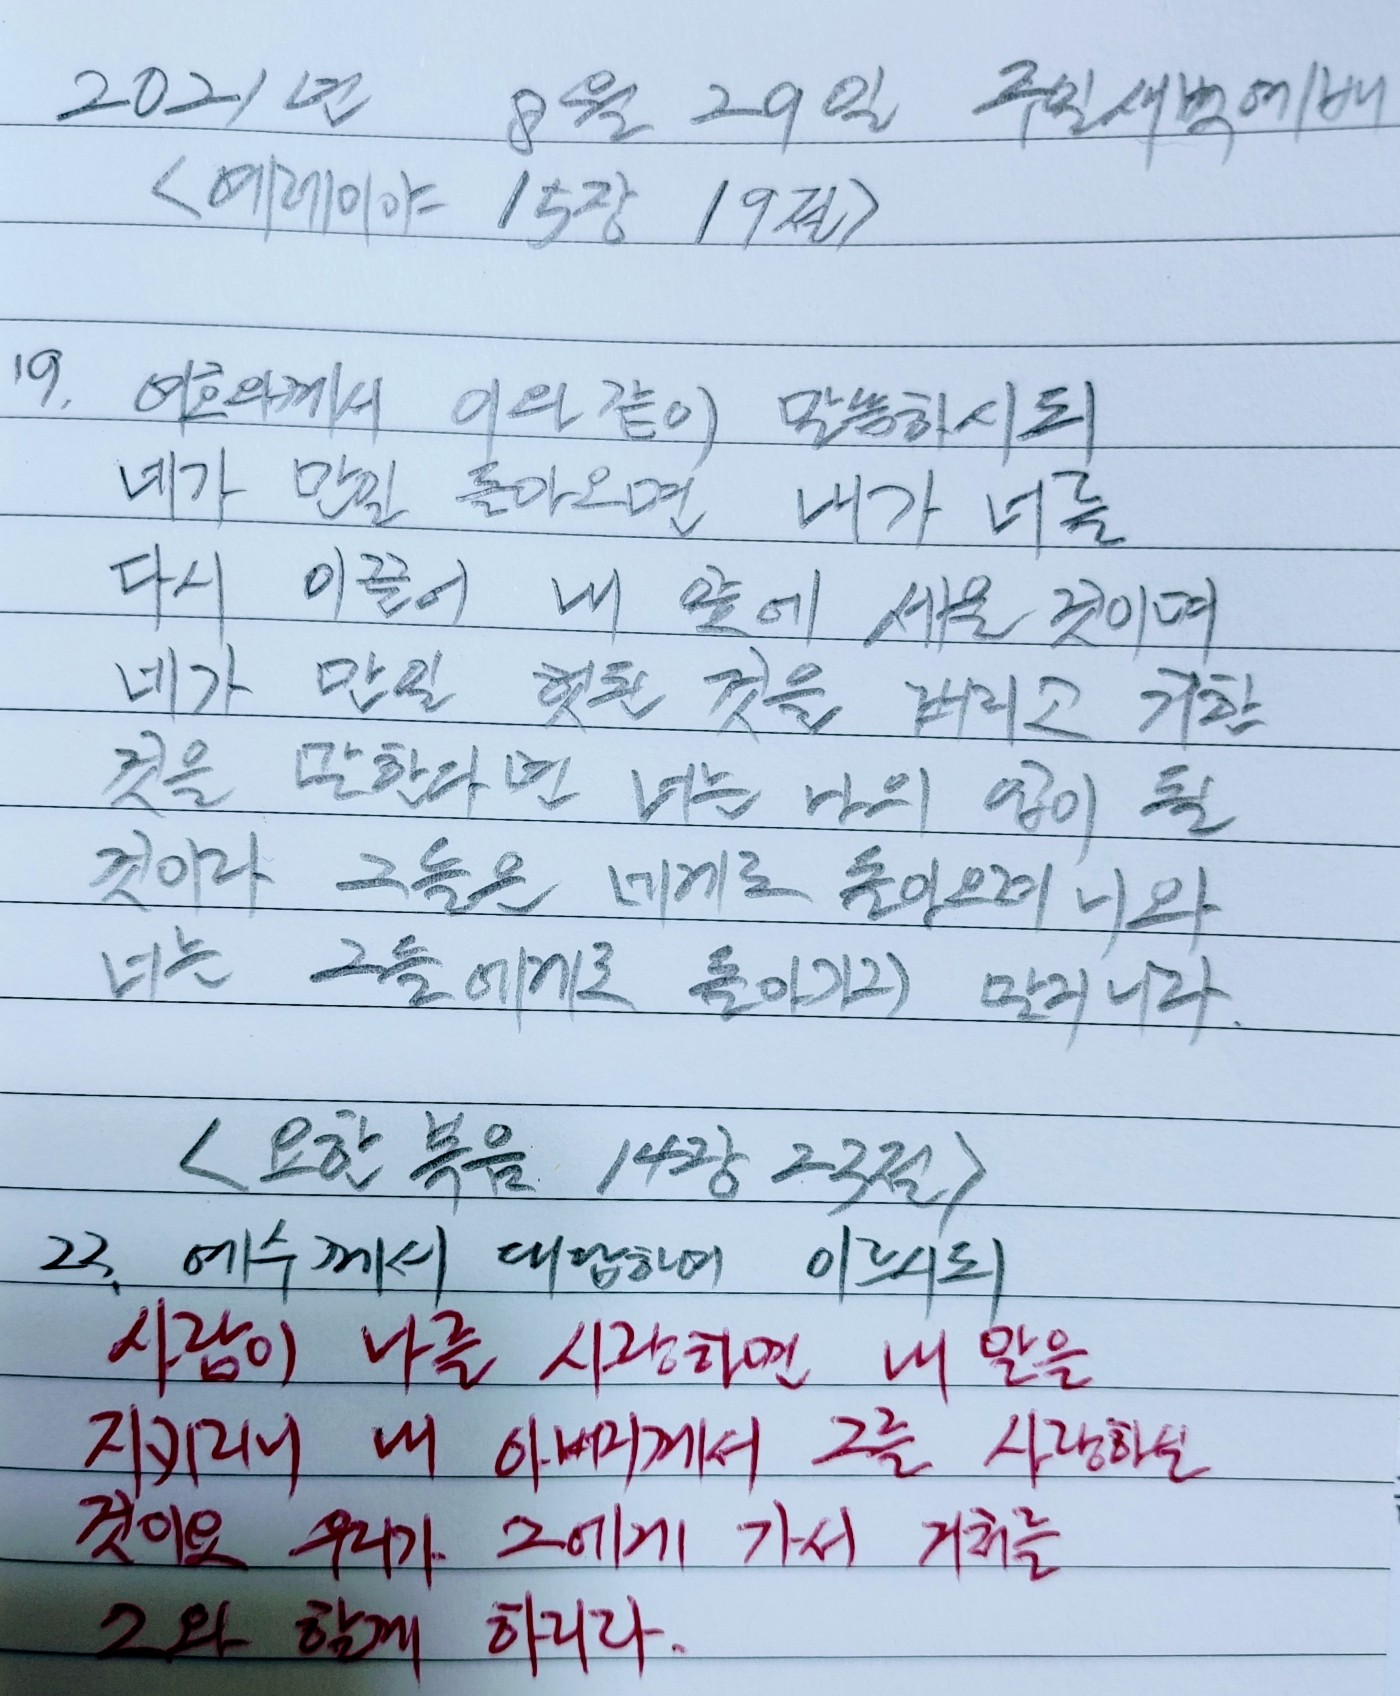 2021년 8월 29일 주일새벽예배
<예레미야 15장 19절>
19. 여호와께서 이와 같이 말씀하시되
네가 만일 돌아오면 내가 너를
다시 이끌어 내 앞에 세울 것이며
네가 만일 헛된 것을 버리고 귀한
것을 말한다면 너는 나의 입이 될
것이라 그들은 네게로 돌아오려니와
너는 그들에게로 돌아가지 말지니라.
<요한복음 14장 23절>
23. 예수께서 대답하여 이르시되
사람이 나를 사랑하면 내 말을
지키리니 내 아버지께서 그를 사랑하실
것이요 우리가 그에게 가서 거처를
그와 함께 하리라.